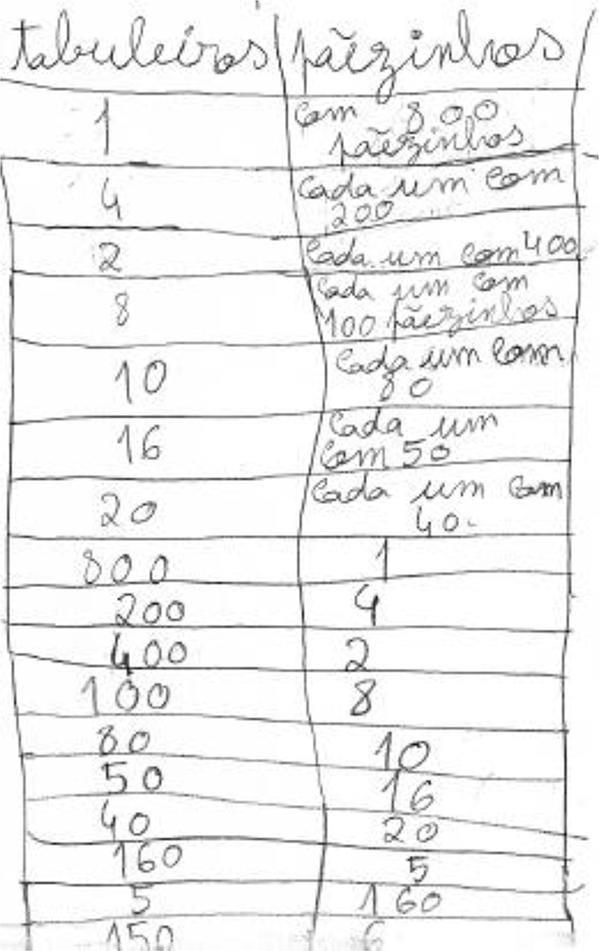 tabuleiros pãezinhos
1 com 800
pãezinhos
4 cada um com
200
2 cada um com 400
8 cada um com
100 pãezinhos
10 cada um com
80
16 cada um
com 50
20 cada um com
40.
800 1
200 4
400 2
100 8
80 10
50 16
40 20
160 5
5 160
150